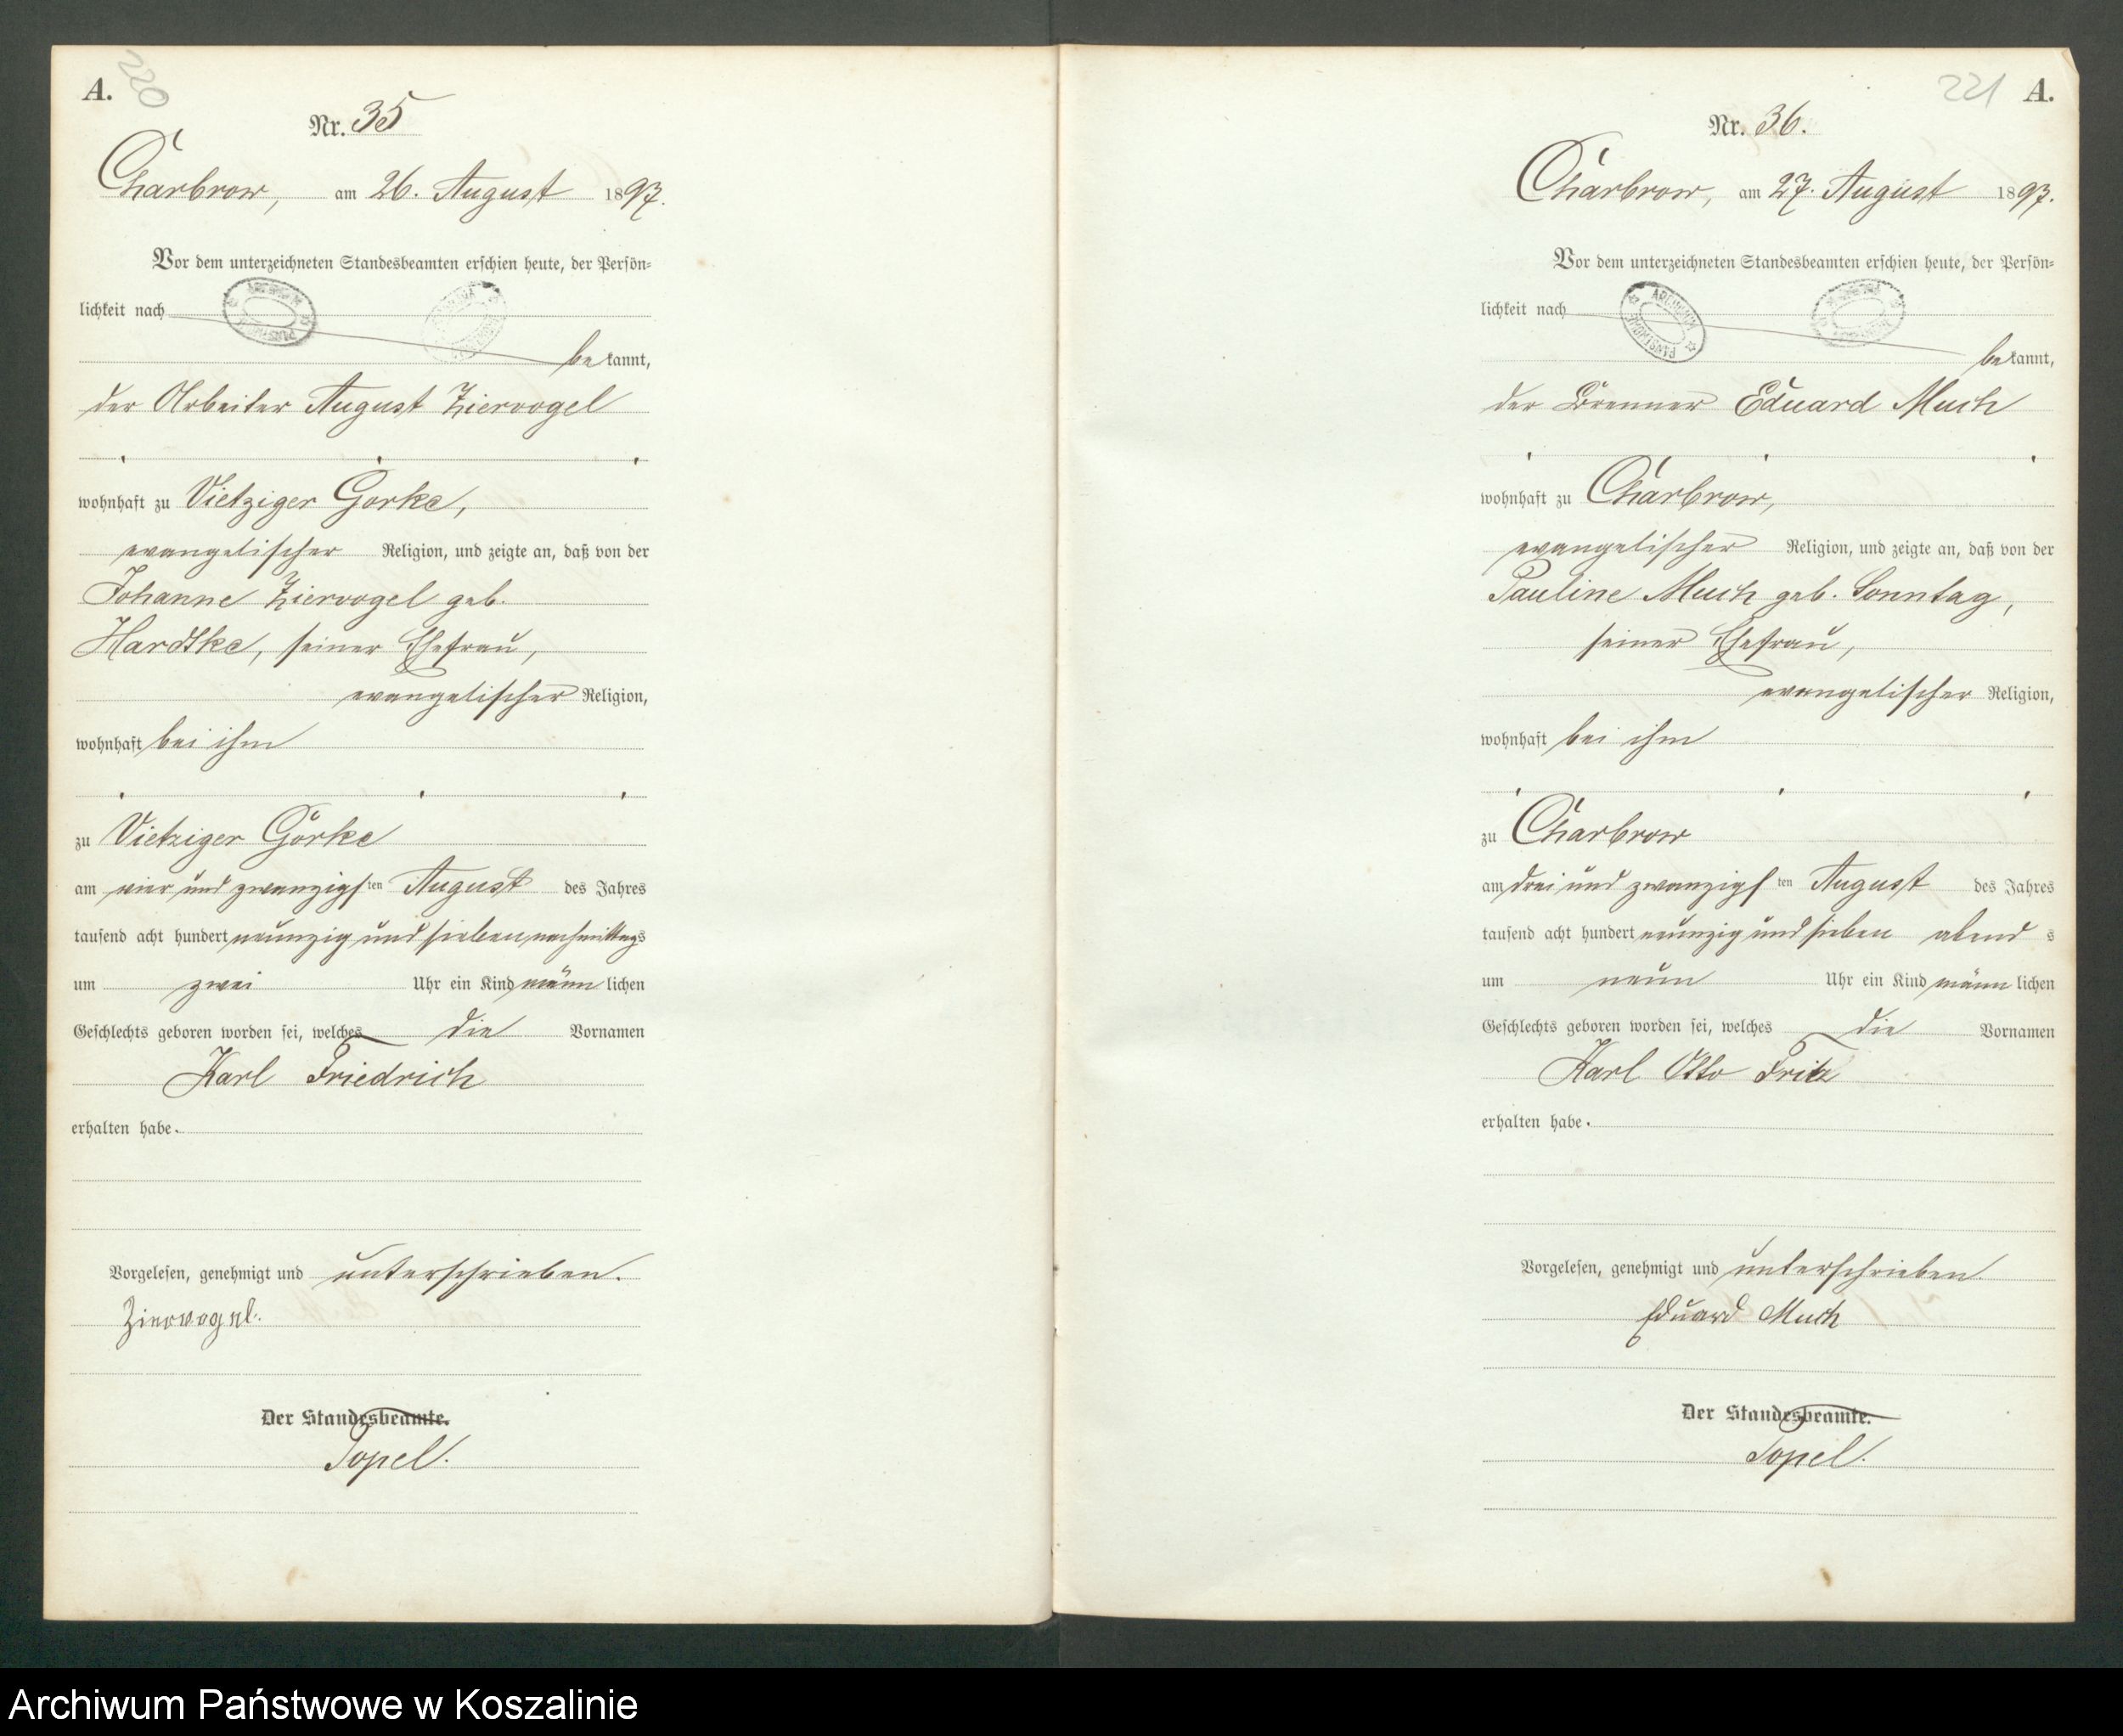 A.
220
Nr. 35
Charbrow, am 26. August 1897.
Vor dem unterzeichneten Standesbeamten erschien heute, der Persön-
lichkeit nach
bekannt,
der Arbeiter August Ziervogel
wohnhaft zu Vietziger Görke,
evangelischer Religion, und zeigte an, daß von der
Johanne Ziervogel geb.
Hardtke, seiner Ehefrau,
evangelischer Religion,
wohnhaft bei ihm
zu Vietziger Görke
am vier und zwanzigsten August des Jahres
tausend acht hundert neunzig und sieben nachmittags
um zwei Uhr ein Kind männlichen
Geschlechts geboren worden sei, welches die Vornamen
Karl Friedrich
erhalten habe.
Vorgelesen, genehmigt und unterschrieben.
Ziervogel.
Der Standesbeamte.
Topel.
221 A.
Nr. 36.
Charbrow, am 27. August 1897.
Vor dem unterzeichneten Standesbeamten erschien heute, der Persön-
lichkeit nach
ARCHIWUM PAŃSTWOWE
bekannt,
der Brenner Eduard Much
wohnhaft zu Charbrow,
evangelischer Religion, und zeigte an, daß von der
Pauline Much geb. Sonntag,
seiner Ehefrau,
evangelischer Religion,
wohnhaft bei ihm
zu Charbrow
am drei und zwanzigsten August des Jahres
tausend acht hundert neunzig und sieben abends
um neun Uhr ein Kind männlichen
Geschlechts geboren worden sei, welches die Vornamen
Karl Otto Fritz
erhalten habe.
Vorgelesen, genehmigt und unterschrieben.
Eduard Much
Der Standesbeamte.
Topel.
Archiwum Państwowe w Koszalinie